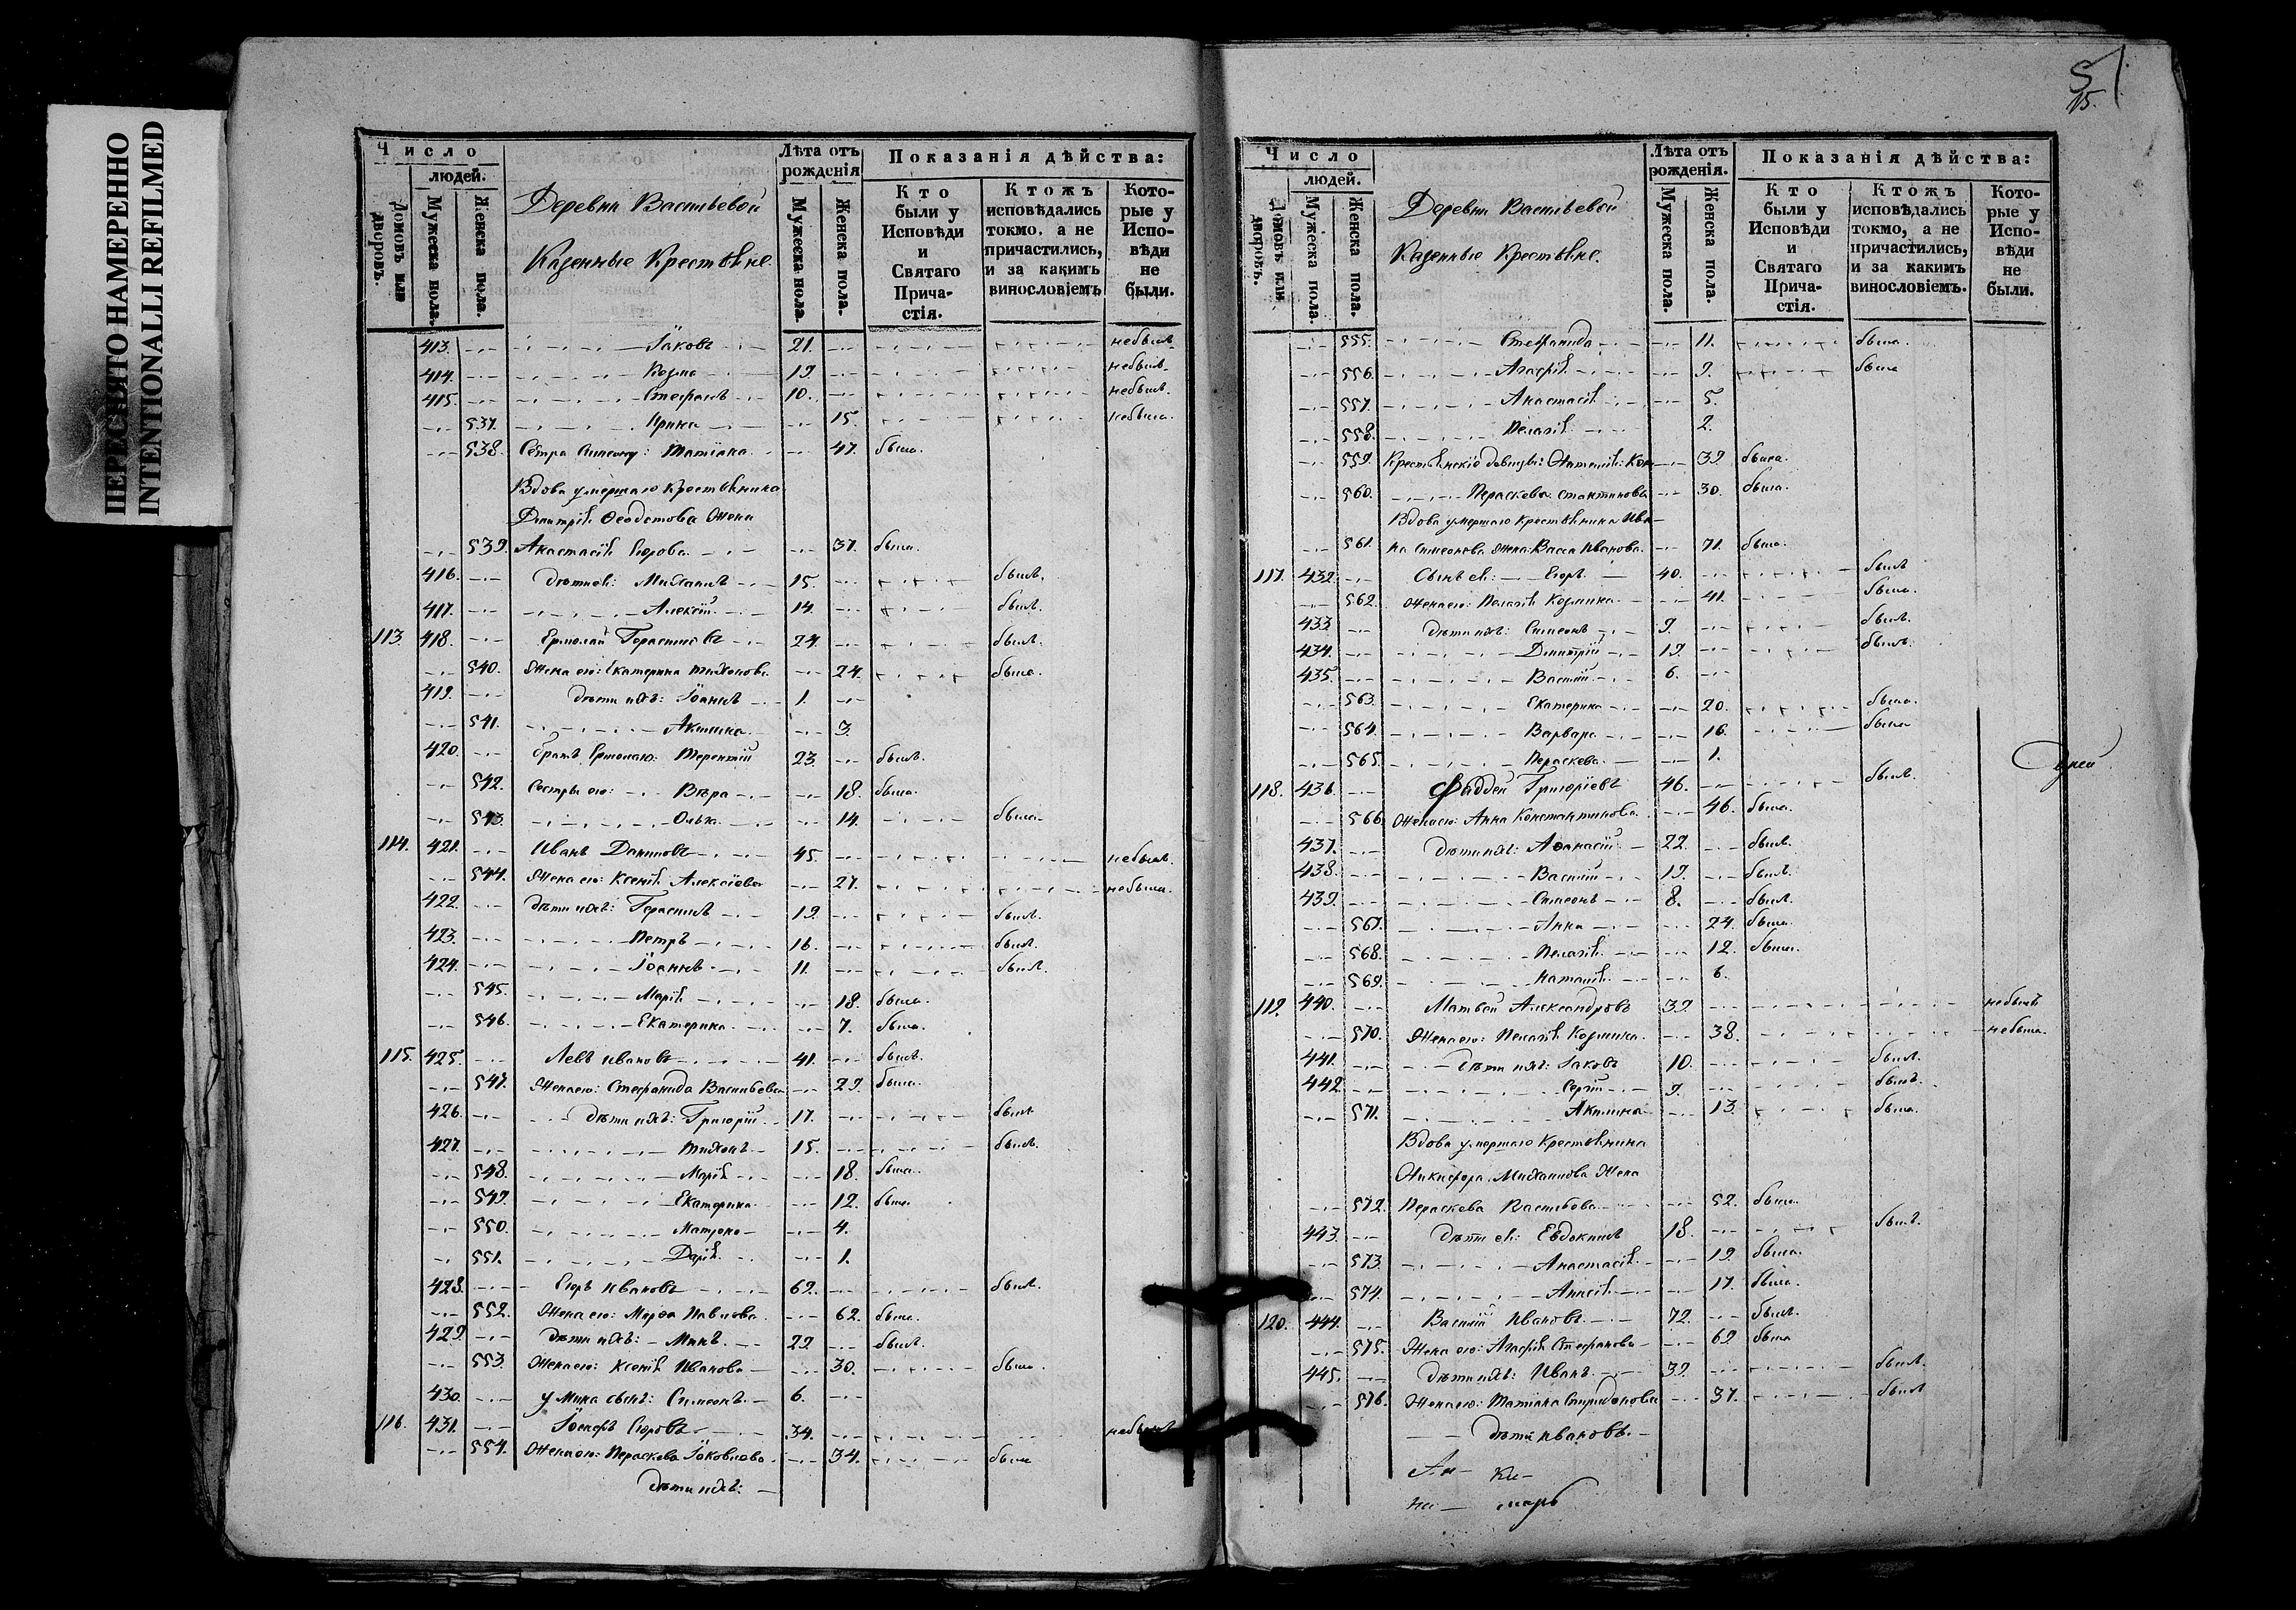 ПЕРЕСНЯТО НАМЕРЕННО
INTENTIONALLI REFILMED
Число
людей.
Домовъ или дворовъ.
Мужеска пола.
Женска пола.
Деревни Васильевой
Казенные Крестьяне.
Лѣта отъ рожденія
Мужеска пола.
Женска пола.
Показанія дѣйства:
Кто были у Исповѣди и Святаго Причастія.
Ктожъ исповѣдались токмо, а не причастились, и за какимъ винословіемъ
Которые у Исповѣди не были.
413. Іаковъ 21. небылъ
414. Козма 19. небылъ
415. Стефанъ 10. небылъ.
537. Ирина 15. небыла.
538. Сестра Татіана 47. была.
Вдова умершаго Крестьянина
Димитрія Ѳеодотова Жена
539. Анастасія Егорова 37. была.
416. Дѣти ея: Михаилъ 15. былъ.
417. Алексій 14. былъ.
113. 418. Ермолай Герасимовъ 24. былъ.
540. Жена его: Екатерина Тихонова 24. была.
419. Дѣти ихъ: Іоаннъ 1.
541. Акилина 3.
420. Братъ Ермолаю: Терентій 23. былъ.
542. Сестры его: Вѣра 18. была.
543. Ольга 14. была
114. 421. Иванъ Даниловъ 45. небылъ.
544. Жена его: Ксенія Алексіева 27. небыла.
422. Дѣти ихъ: Герасимъ 19. былъ.
423. Петръ 16. былъ.
424. Іоаннъ 11. былъ.
545. Марія 18. была.
546. Екатерина 7. была.
115. 425. Левъ Ивановъ 41. былъ.
547. Жена его: Стефанида Васильева 29. была.
426. Дѣти ихъ: Григорій 17. былъ
427. Тихонъ 15. былъ.
548. Марія 18. была.
549. Екатерина 12. была
550. Матрона 4.
551. Дарія 1.
428. Егоръ Ивановъ 62. былъ.
552. Жена его: Марѳа Павлова 62. была.
429. Дѣти ихъ: Мина 29. былъ.
553. Жена его: Ксенія Иванова 30. была.
430. у Мина сынъ: Симеонъ 6.
116. 431. Іосифъ Егоровъ 34. небылъ
554. Жена его: Параскева Іаковлева 34. была
Дѣти ихъ:
51
15.
Число
людей.
Домовъ или дворовъ.
Мужеска пола.
Женска пола.
Деревни Васильевой
Казенные Крестьяне.
Лѣта отъ рожденія.
Мужеска пола.
Женска пола.
Показанія дѣйства:
Кто были у Исповѣди и Святаго Причастія.
Ктожъ исповѣдались токмо, а не причастились, и за какимъ винословіемъ.
Которые у Исповѣди не были.
555. Стефанида 11. была.
556. Агафія 9. была
557. Анастасія 5.
558. Пелагія 2.
559. Крестьянскіе дѣвицы: Наталія: Кон 39. была.
560. Параскева стантиновы 30. была.
Вдова умершаго Крестьянина Ива-
561. на Симеонова Жена: Васса Иванова. 71. была.
117. 432. Сынъ ея: Егоръ 40. былъ
562. Жена его: Пелагія Козмина 41. была.
433. Дѣти ихъ: Симеонъ 9. былъ.
434. Димитрій 19. былъ.
435. Василій 6.
563. Екатерина 20. была.
564. Варвара 16. была
565. Параскева 1.
118. 436. Фаддей Григоріевъ 46. былъ.
566. Жена его: Анна Константинова 46. была.
437. Дѣти ихъ: Аѳанасій 22. былъ.
438. Василій 19. былъ
439. Симеонъ 8. былъ.
567. Анна 24. была.
568. Пелагія 12. была.
569. Наталія 6.
119. 440. Матвей Александровъ 39. небылъ
570. Жена его: Пелагія Козмина 38. небыла.
441. Дѣти ихъ: Іаковъ 10. былъ.
442. Сергій 9. былъ.
571. Акилина 13. была.
Вдова умершаго Крестьянина
Никифора Михаилова Жена
572. Параскева Васильева 52. была
443. Дѣти ея: Евдокимъ 18. былъ.
573. Анастасія 19. была.
574. Анисія 17. была.
120. 444. Василій Ивановъ 72. былъ.
575. Жена его: Агафія Стефанова 69. была
445. Дѣти ихъ: Иванъ 39. былъ.
576. Жена его: Татіана Спиридонова 37. была
Дѣти Ивановъ.